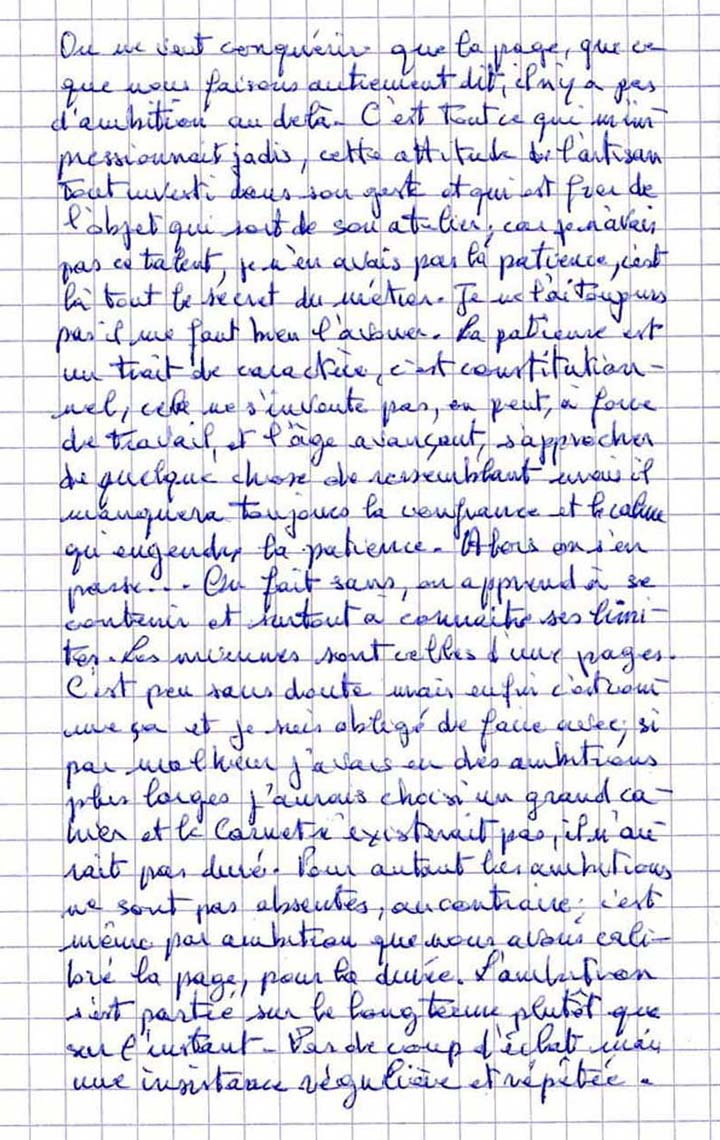 On ne veut conquérir que la page, que ce
que nous faisons autrement dit, il n'y a pas
d'ambition au delà. C'est tout ce qui m'im-
pressionnait jadis, cette attitude de l'artisan
tout investi dans son geste et qui est fier de
l'objet qui sort de son atelier; car je n'avais
pas ce talent, je n'en avais pas la patience, c'est
là tout le secret du métier. Je ne l'ai toujours
pas il me faut bien l'avouer. La patience est
un trait de caractère, c'est constitution-
nel, cela ne s'invente pas, on peut, à force
de travail, et l'âge avançant, s'approcher
de quelque chose de ressemblant mais il
manquera toujours la confiance et le calme
qu'engendre la patience. Alors on s'en
passe... On fait sans, on apprend à se
contenir et surtout à connaître ses limi-
tes. Les miennes sont celles d'une pages.
C'est peu sans doute mais enfin c'est com-
me ça et je suis obligé de faire avec; si
par malheur j'avais eu des ambitions
plus larges j'aurais choisi un grand ca-
hier et le Carnet n'existerait pas, il n'au-
rait pas duré. Pour autant les ambitions
ne sont pas absentes, au contraire; c'est
même par ambition que nous avons cali-
bré la page, pour la durée. L'ambition
s'est portée sur le long terme plutôt que
sur l'instant. Pas de coup d'éclat mais
une insistance régulière et répétée.